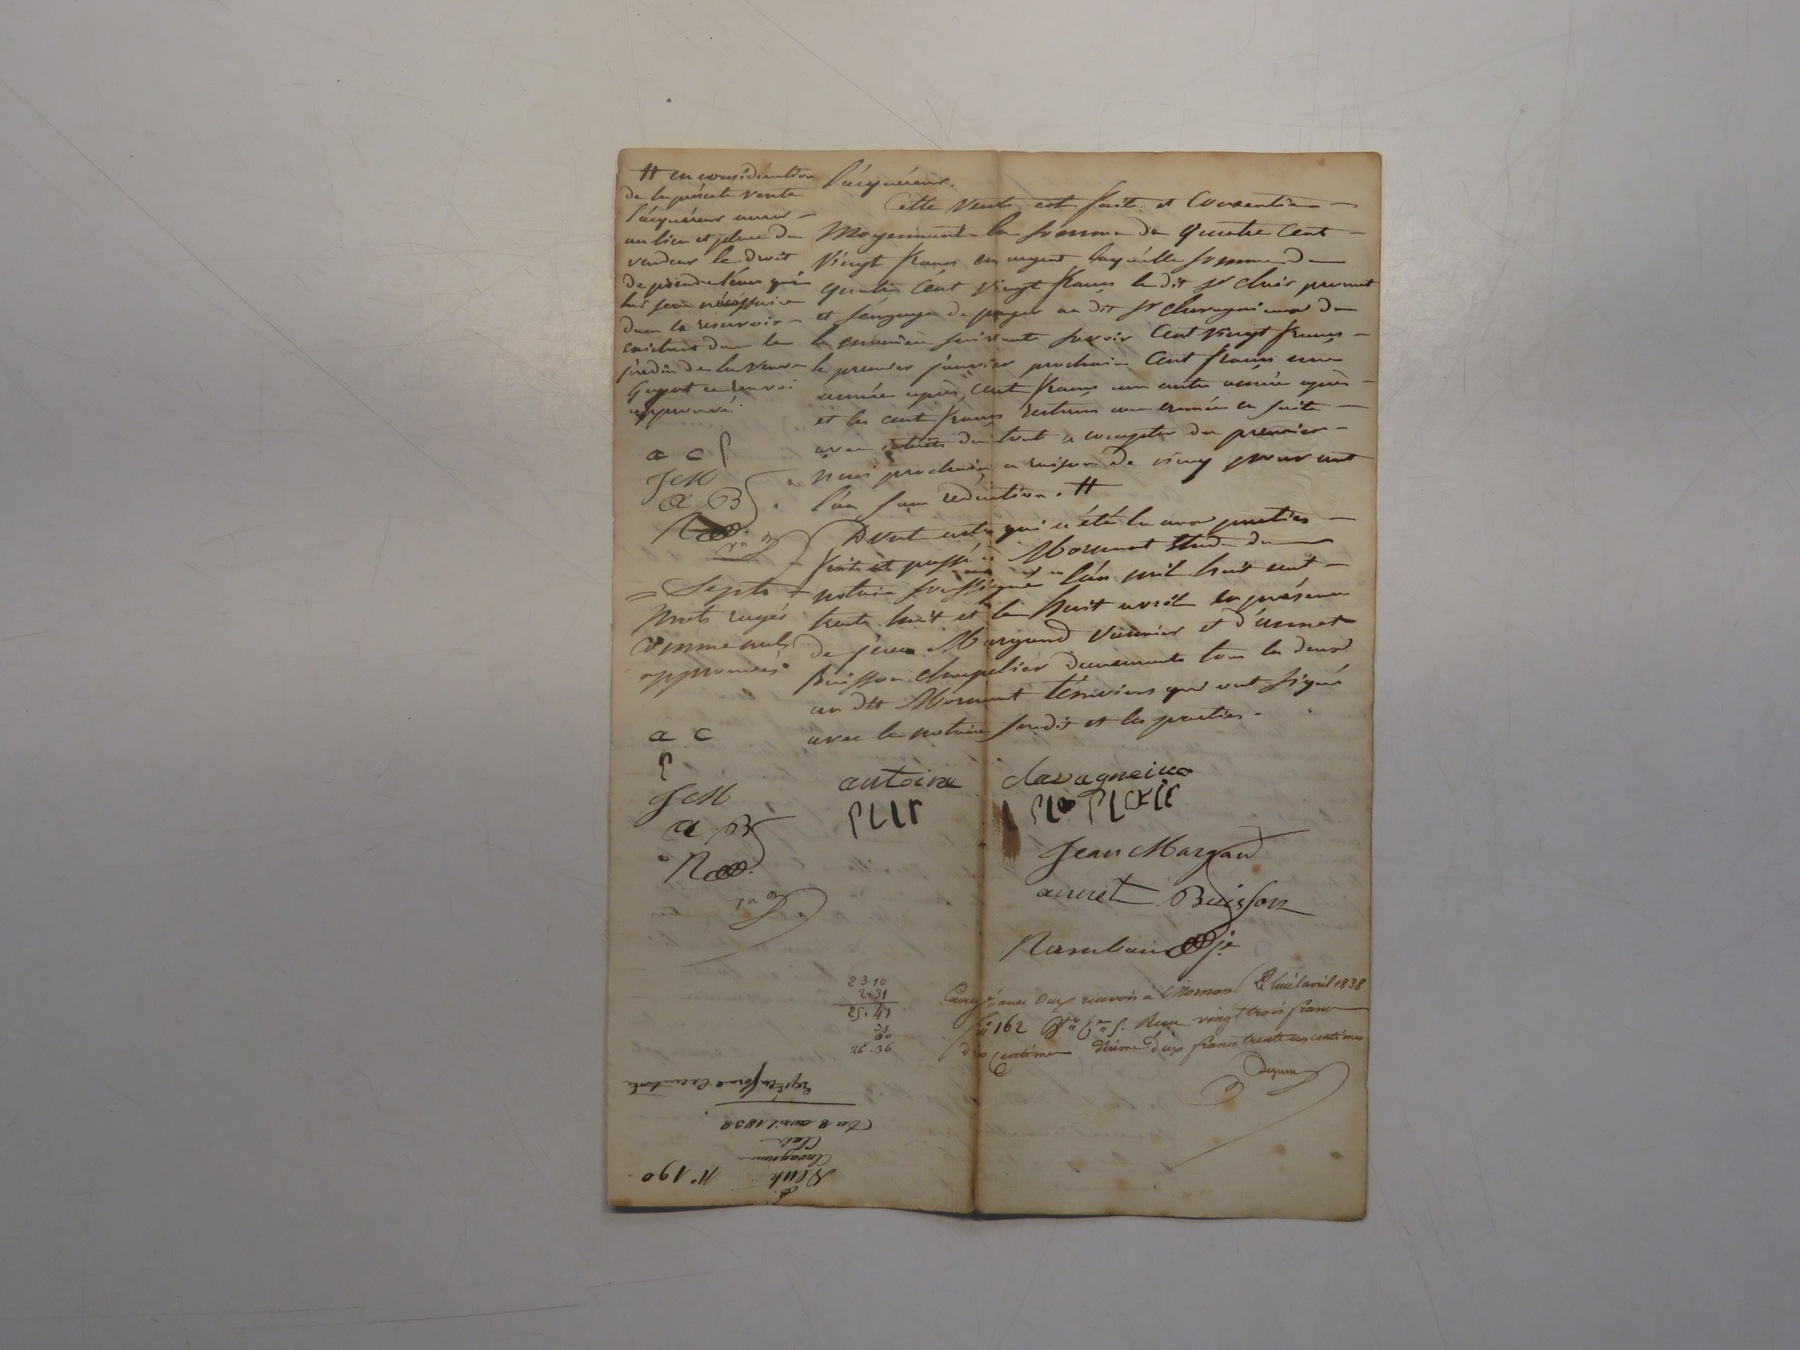 # en considération
de la présente vente
l'acquéreur aura
au lieu et place du
vendeur le droit
de prendre l'eau qui
lui sera nécessaire
dans le réservoir
existant dans le
jardin de la Veuve
Guyot ce renvoi
approuvé
a c
JM
a B
R
Septs
mots rayés
comme nuls
approuvés
a c
JM
a B
R
l'acquéreur.
Cette vente est faite et Consentie
Moyennant la somme de quatre Cent
Vingt francs en argent laquelle somme de
quatre Cent vingt francs le dit Sr clair promet
et s'engage de payer au dit Sr chavagnieux de
la manière suivante savoir Cent vingt francs
le premier janvier prochain Cent francs une
année après, Cent francs une autre année après
et les cent francs restans une année en suite
avec intérêts du tout a compter du premier
mai prochain a raison de cinq pour cent
l'an sans rédaction. #
Dont acte qui a été lu aux parties
fait et passé à Mornant Etude du
notaire soussigné l'an mil huit cent
trente huit et le huit avril en présence
de jean Margand et d'annet
Buisson chapelier demeurants tous les deux
au dit Mornant témoins qui ont signé
avec le notaire susdit et les parties.
antoine clavagneiux
Jean Margand
annet Buisson
Rambaud je
23.10
2.31
25.41
26.36
Enregistré à Mornant Le huit avril 1838
fo 162 Vo Reçu vingt trois francs
dix Centimes dixme deux francs trente un centimes
N° 190
Vente
Clavagnieux
Clair
Du 8 avril 1838
Expée en forme Exécutoire